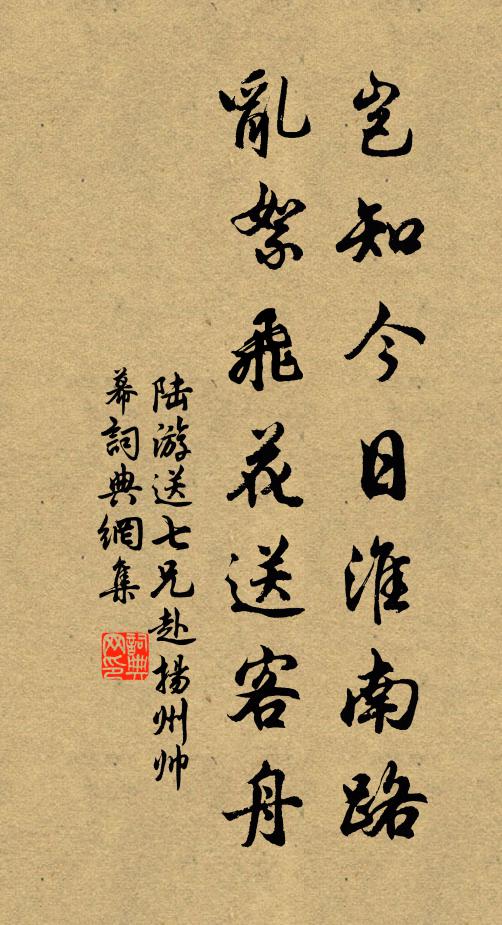 豈知今日淮南路
亂絮飛花送客舟
陆游送七兄赴揚州帅
幕詞典網集
詞典
网印